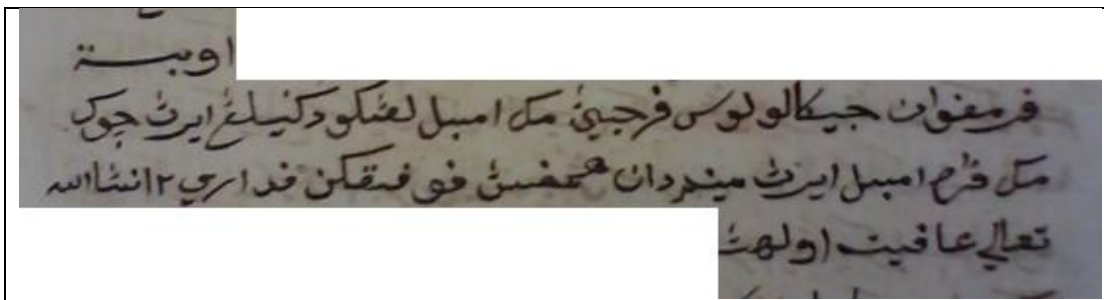 اوبة
فرمفوان جيكالو لوس فرجيڽ مک امبل لڠکو دکنيسلڠ ايرڽ چوک
مک فرم امبل ايرڽ مينم دان همفسڽ فون فوقکن فد اري ٢ انشاالله
تعالي عافية اولهڽ